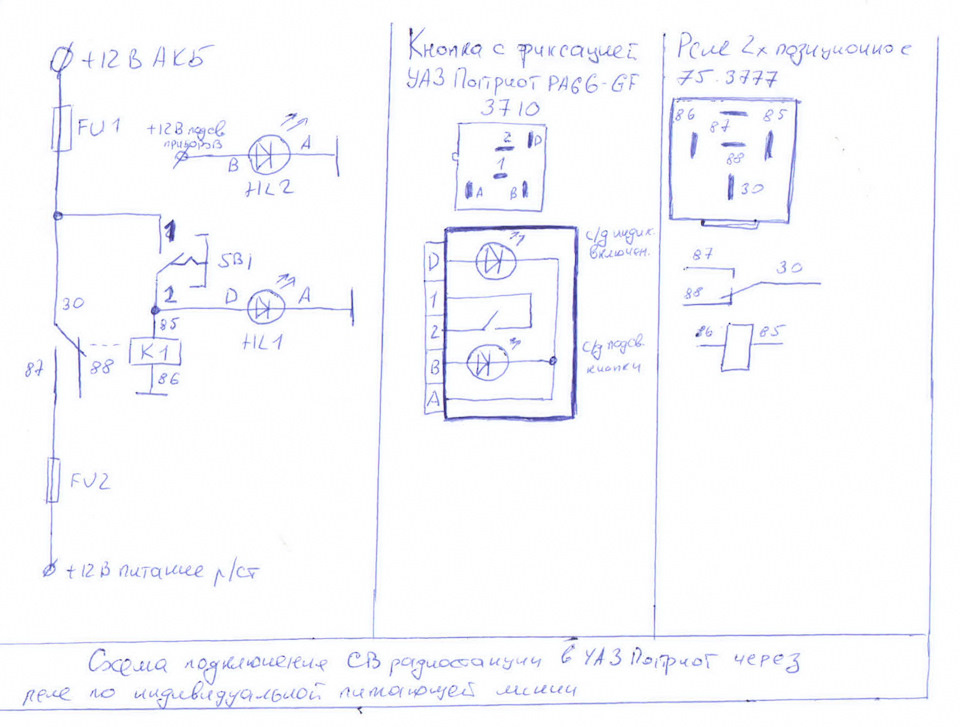 +12В АКБ
FU1
+12В подсв
приборов
B
A
HL2
1
SB1
2
D
A
85
HL1
30
K1
87
88
86
FU2
+12В питание р/ст
Кнопка с фиксацией
УАЗ Патриот PA66-GF
3710
2
D
1
A
B
с/д индик.
включен.
D
1
2
B
A
с/д подсв.
кнопки
Реле 2х позиционное
75.3777
86
87
85
88
30
87
30
88
86
85
Схема подключение СВ радиостанции в УАЗ Патриот через
реле по индивидуальной питающей линии